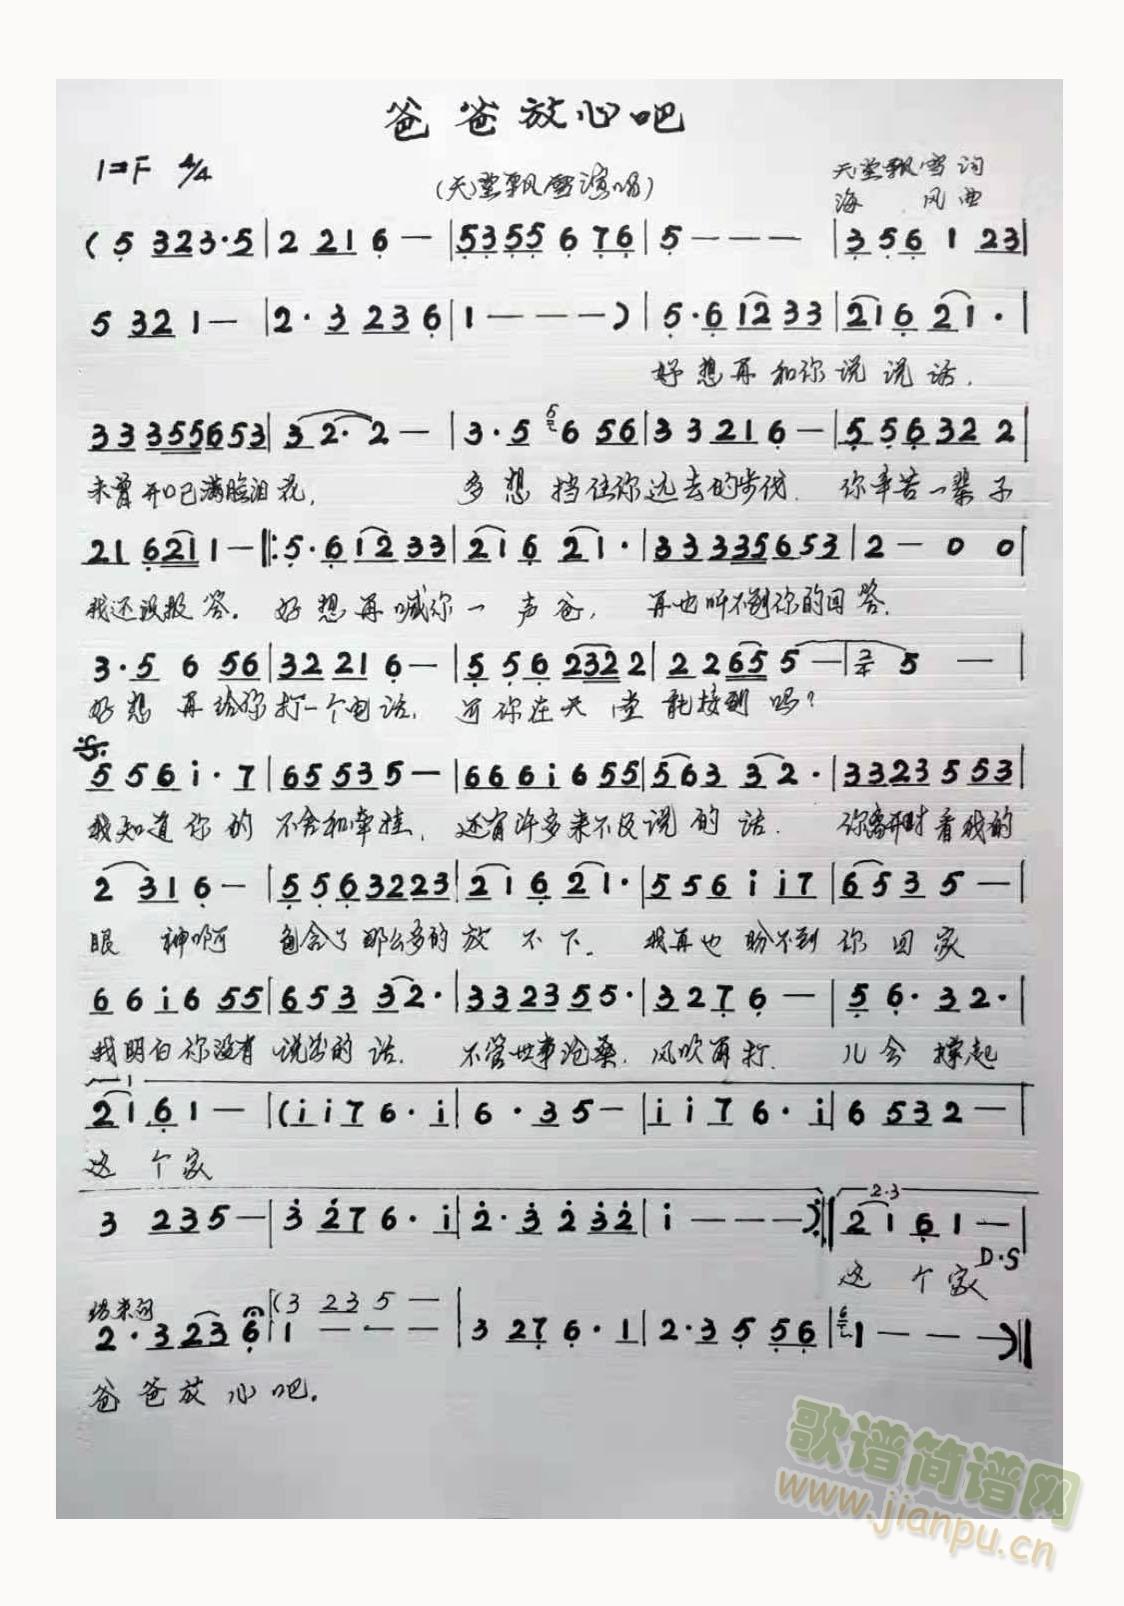 爸爸放心吧
1=F 4/4
(天堂飘雪演唱)
天堂飘雪 词
海 风 曲
( 5 3 2 3 · 5 | 2 2 1 6 — | 5 3 5 5 6 7 6 | 5 — — — | 3 5 6 1 2 3 |
5 3 2 1 — | 2 · 3 2 3 6 | 1 — — — ) | 5 · 6 1 2 3 3 | 2 1 6 2 1 · |
好想再和你说说话,
3 3 3 5 5 6 5 3 | 3 2 · 2 — | 3 · 5 6 5 6 | 3 3 2 1 6 — | 5 5 6 3 2 2 |
未曾开口已满脸泪花, 多想挡住你远去的步伐. 你辛苦一辈子
2 1 6 2 1 1 — ‖: 5 · 6 1 2 3 3 | 2 1 6 2 1 · | 3 3 3 3 5 6 5 3 | 2 — 0 0 |
我还没报答。好想再喊你一声爸, 再也听不到你的回答.
3 · 5 6 5 6 | 3 2 2 1 6 — | 5 5 6 2 3 2 2 | 2 2 6 5 5 — | 2/4 5 — |
好想再给你打一个电话, 可你在天堂能接到吗?
5 5 6 i · 7 | 6 5 5 3 5 — | 6 6 6 i 6 5 5 | 5 6 3 3 2 · | 3 3 2 3 5 5 3 |
我知道你的不舍和牵挂, 还有许多来不及说的话. 你离开时看我的
2 3 1 6 — | 5 5 6 3 2 2 3 | 2 1 6 2 1 · | 5 5 6 i i 7 | 6 5 3 5 — |
眼神啊 包含了那么多的放不下. 我再也盼不到你回家
6 6 i 6 5 5 | 6 5 3 3 2 · | 3 3 2 3 5 5 · | 3 2 7 6 — | 5 6 · 3 2 · |
我明白你没有说出的话. 不管世事沧桑. 风吹雨打. 儿会撑起
1
2 1 6 1 — | ( i i 7 6 · i | 6 · 3 5 — | i i 7 6 · i | 6 5 3 2 — |
这个家
3 2 3 5 — | 3 2 7 6 · i | 2 · 3 2 3 2 | i — — — ) :‖ 2 1 6 1 — |
2·3
这个家 D·S
结束句
( 3 2 3 5 —
2 · 3 2 3 6 | 1 — — — | 3 2 7 6 · 1 | 2 · 3 5 5 6 | 1 — — — ) ‖
爸爸放心吧.
歌谱简谱网
www.jianpu.cn